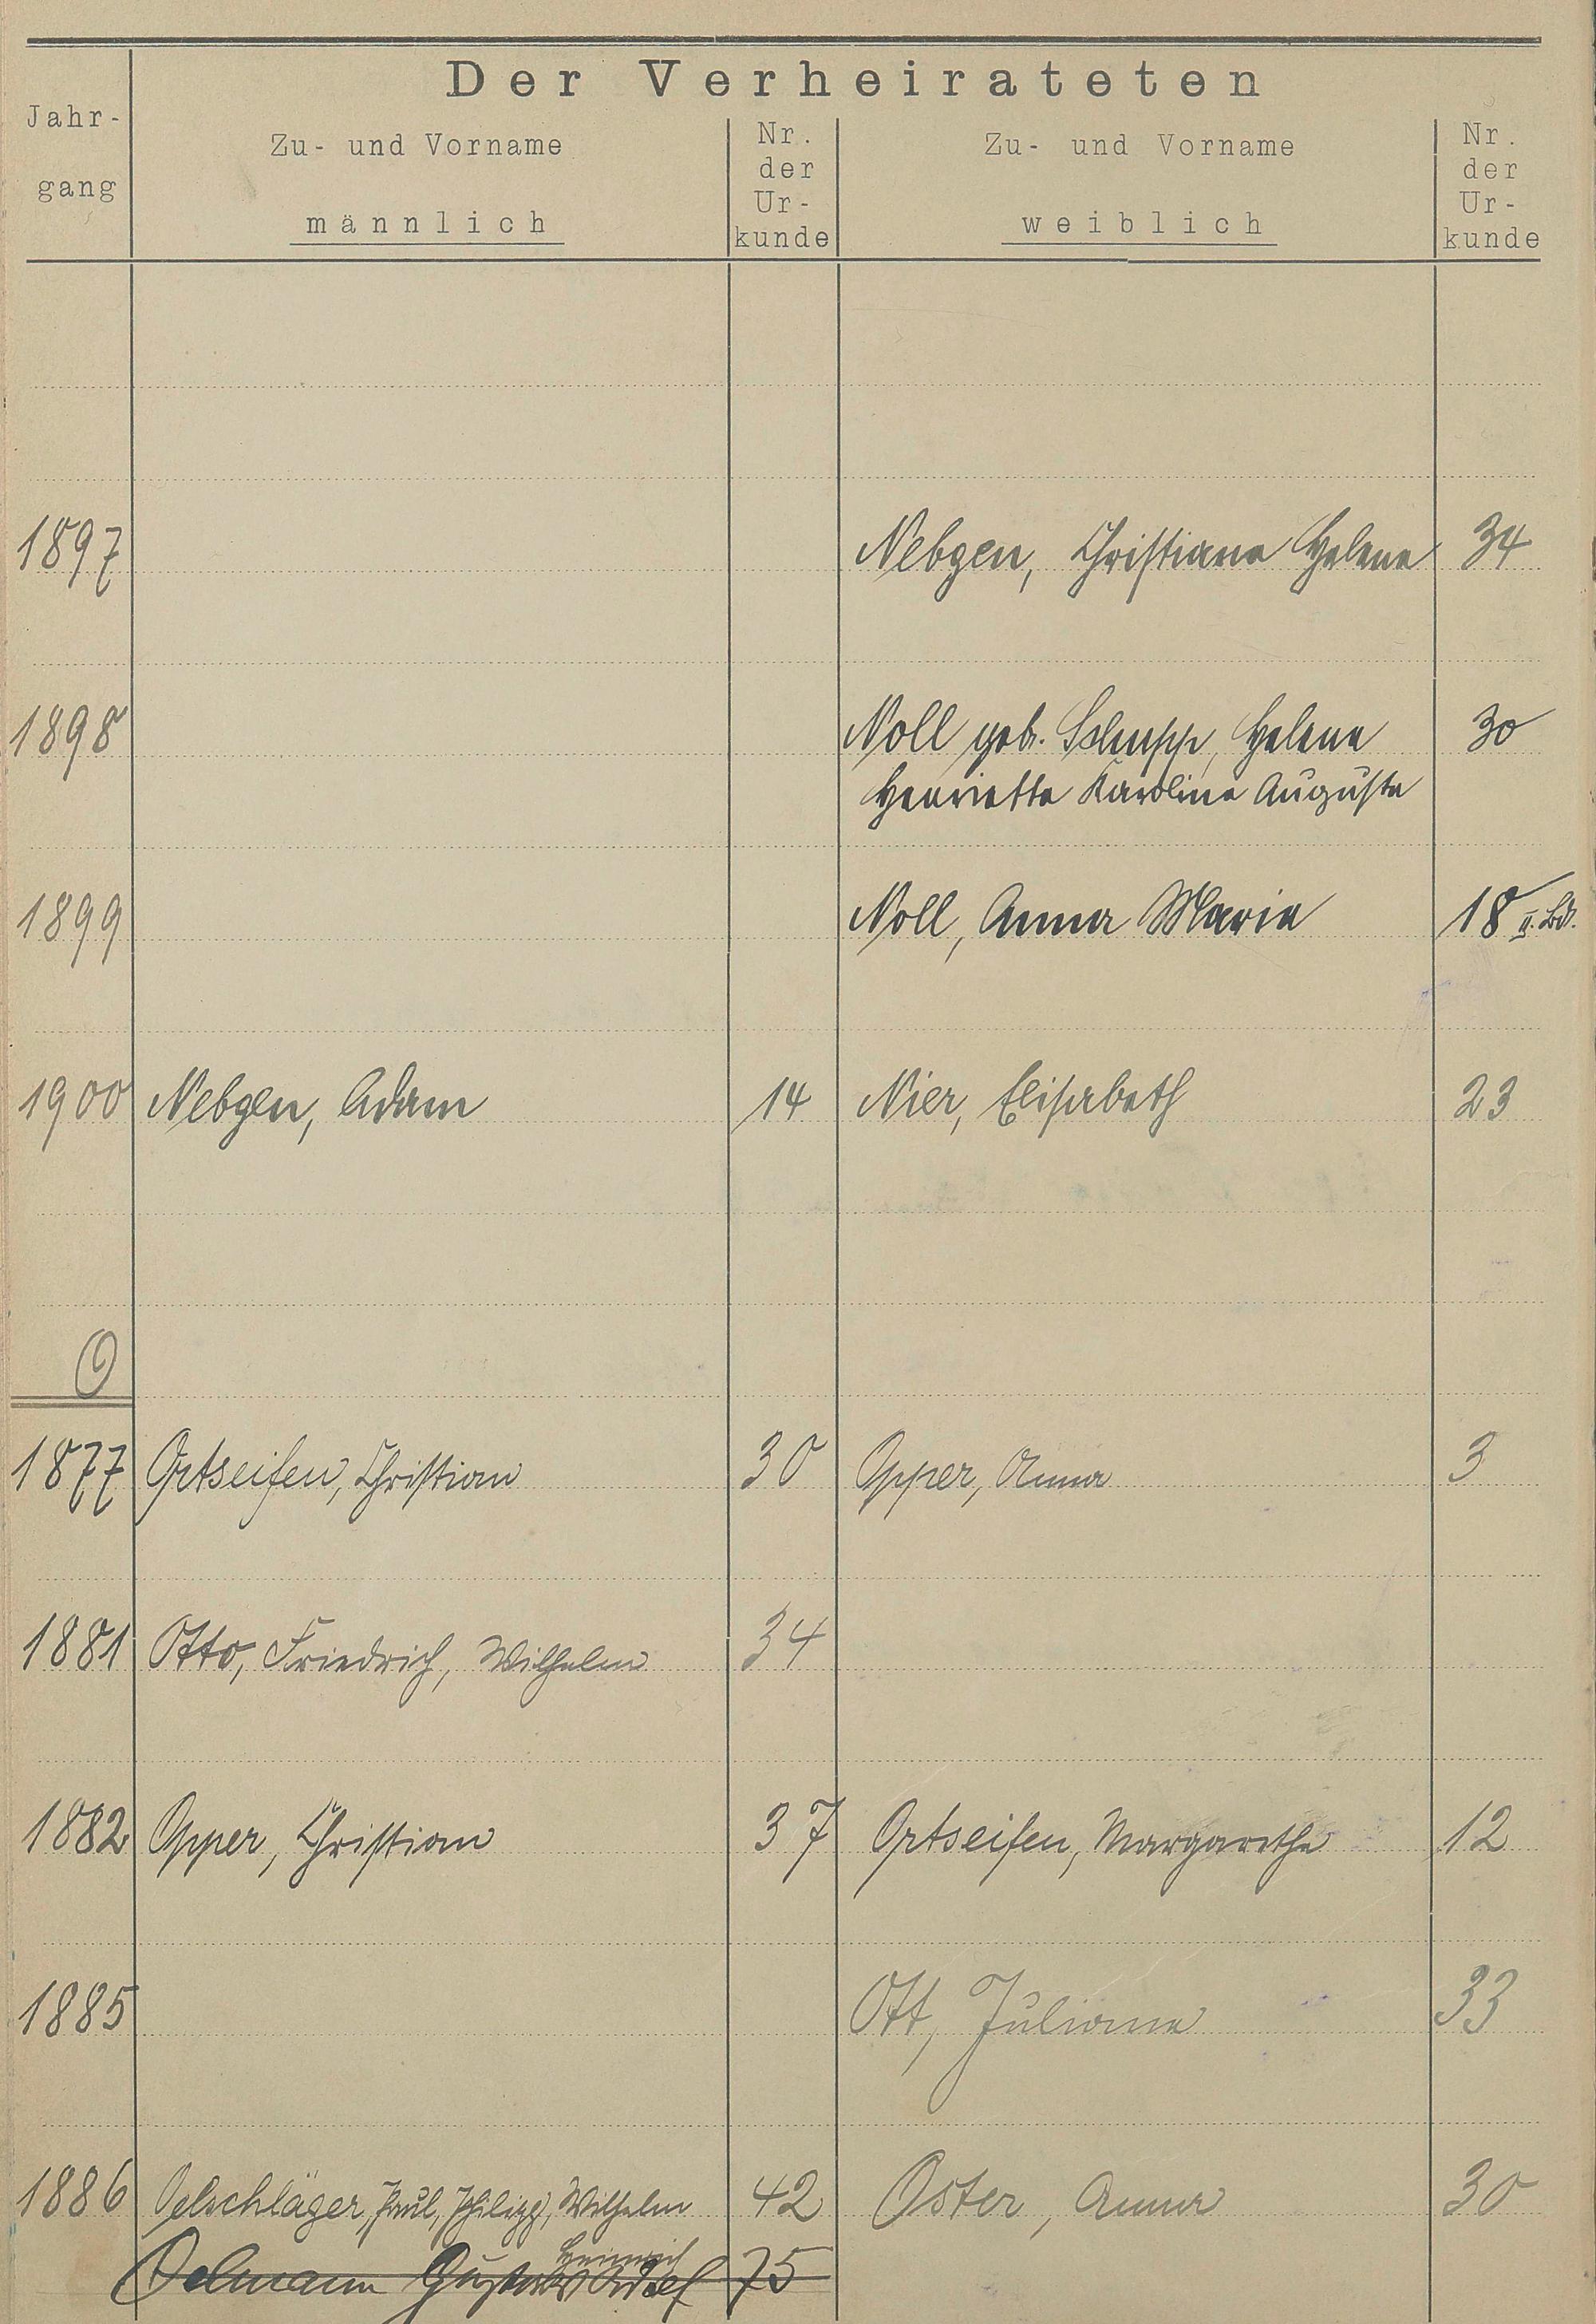 Der Verheirateten
Jahr-
gang
Zu- und Vorname
männlich
Nr.
der
Ur-
kunde
Zu- und Vorname
weiblich
Nr.
der
Ur-
kunde
1897 Nebgen, Christiane Helene 34
1898 Noll geb. Schupp, Helene 30
Henriette Karoline Auguste
1899 Noll, Anna Maria 18 II. Bd.
1900 Nebgen, Adam 14 Nier, Elisabeth 23
O
1877 Ortseifen, Christian 30 Opper, Anna 3
1881 Otto, Friedrich, Wilhelm 34
1882 Opper, Christian 37 Ortseifen, Margarethe 12
1885 Ott, Juliane 33
1886 Oelschläger, Paul, Philipp, Wilhelm 42 Oster, Anna 30
Heinrich
Oelmann Gustav Adolf 75